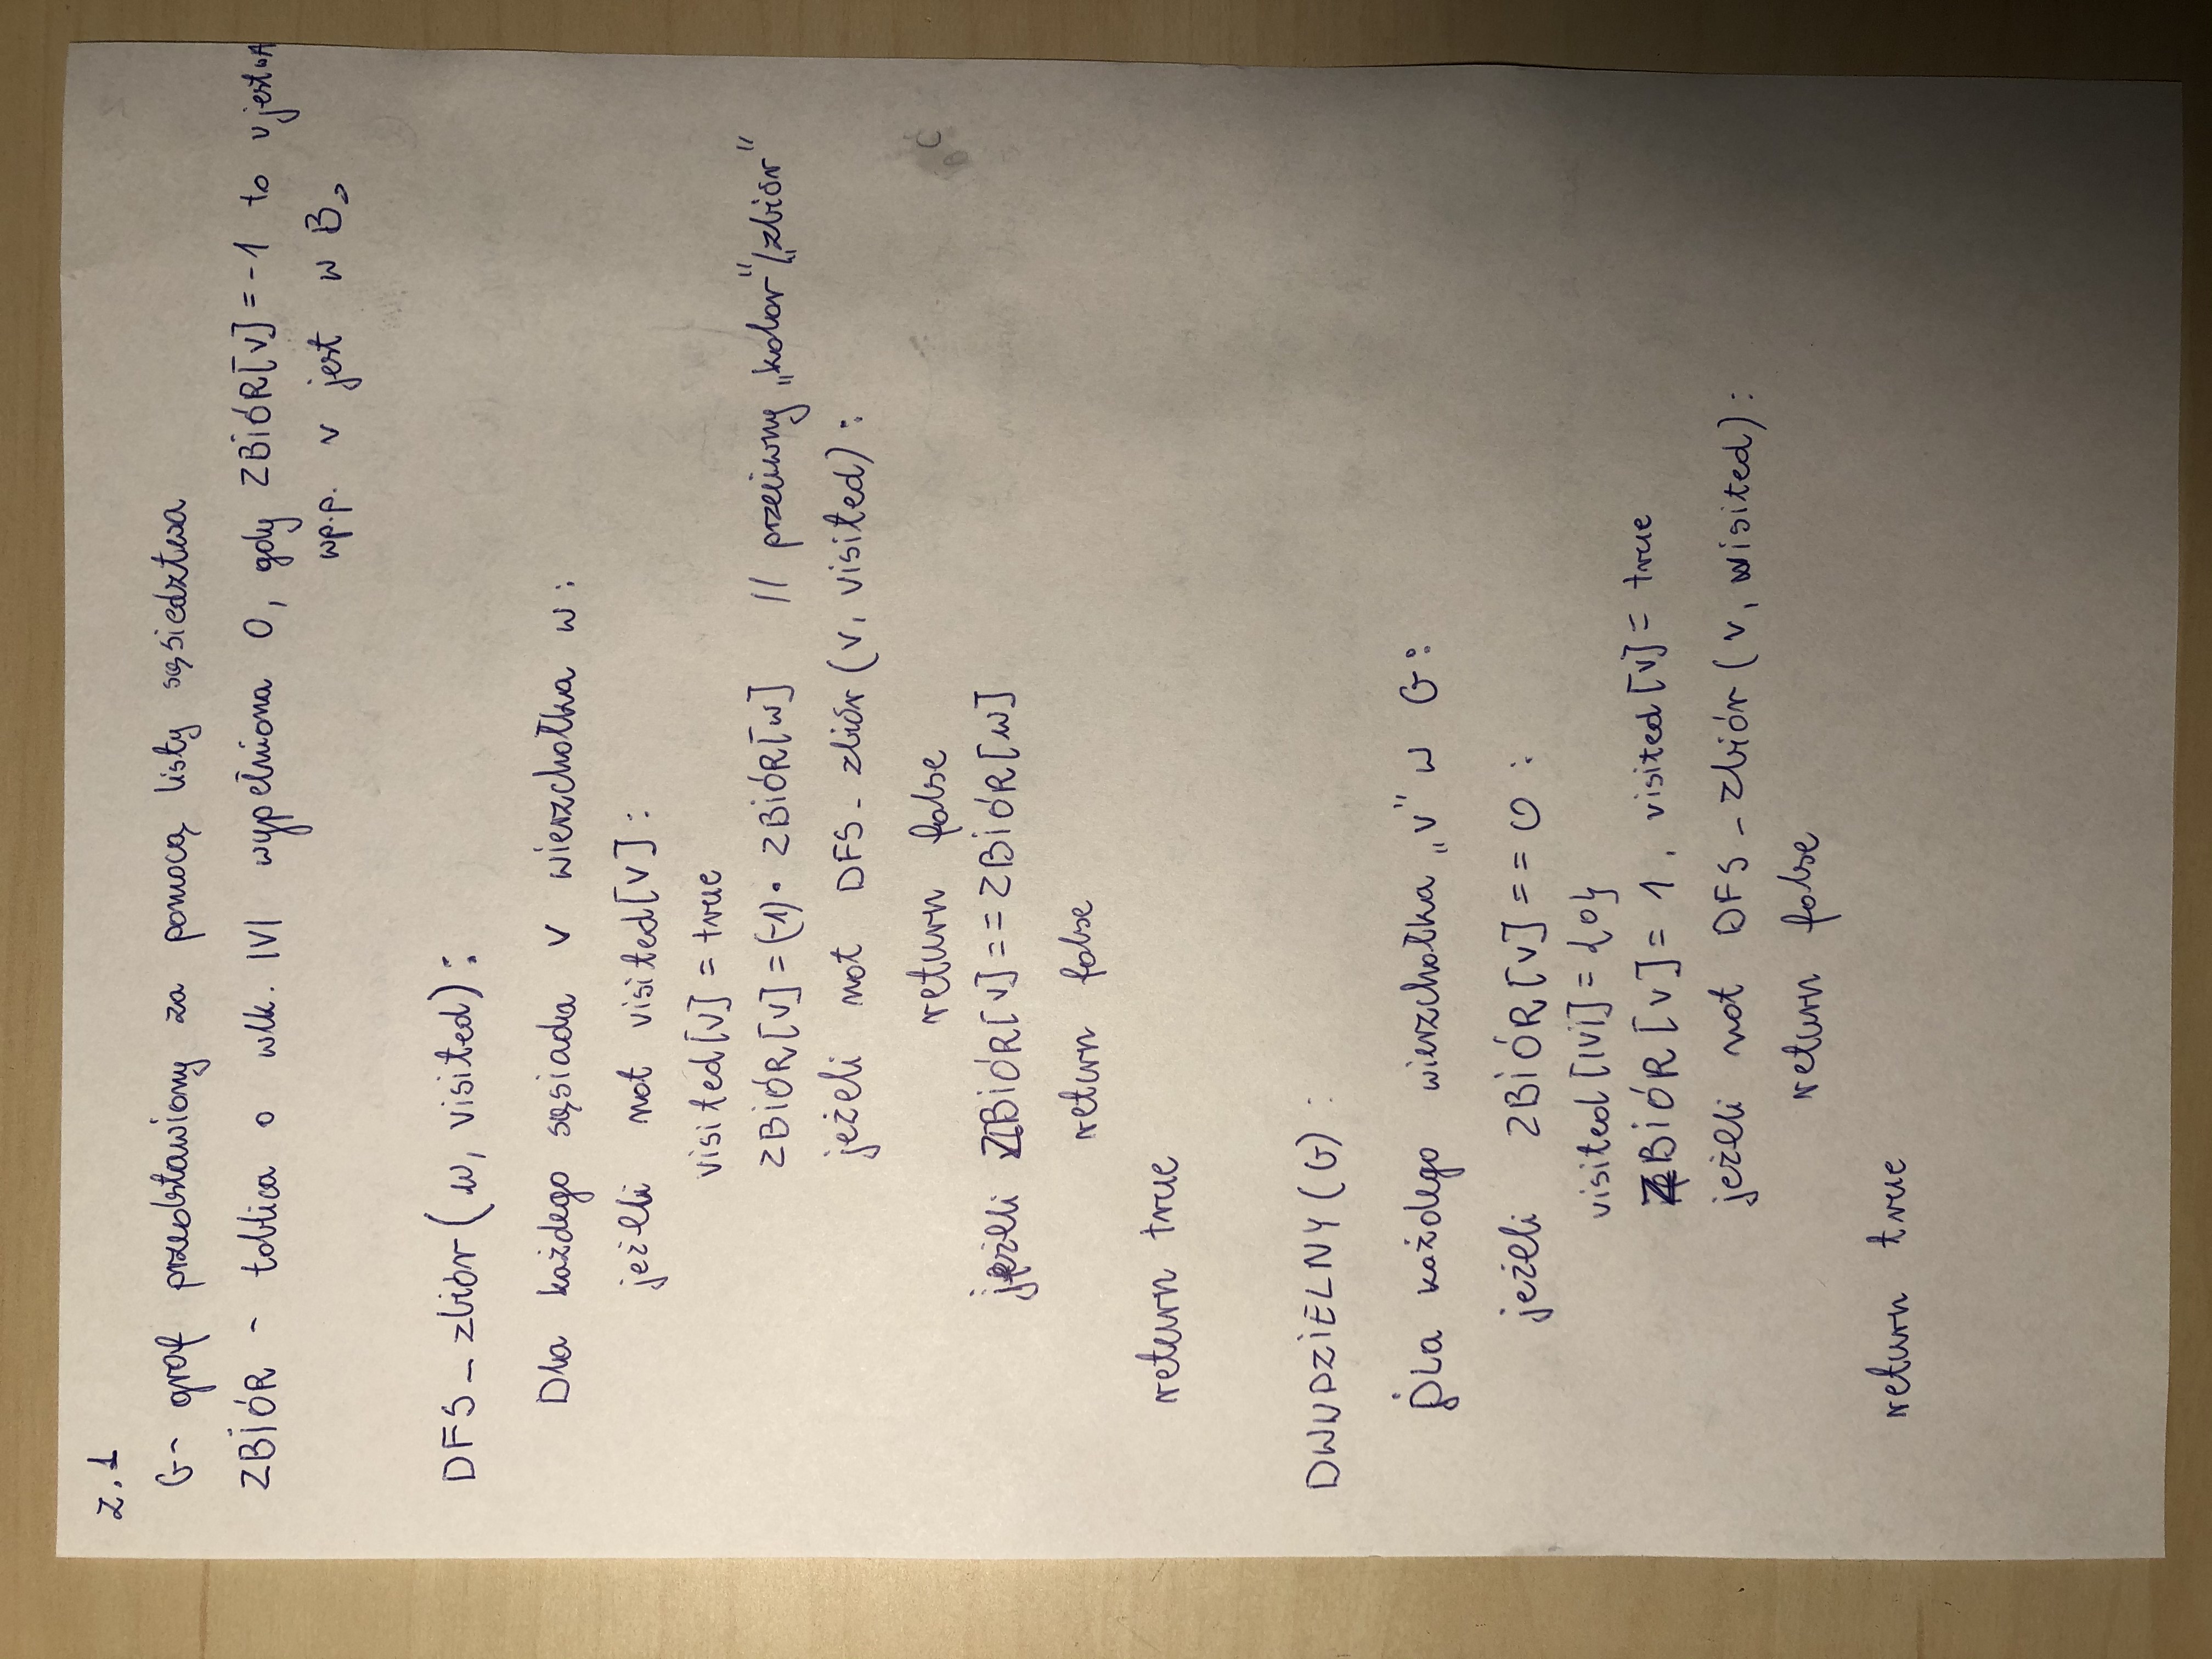 z.1
G- graf przedstawiony za pomocą listy sąsiedztwa
ZBIÓR - tablica o wlk. |V| wypełniona 0, gdy ZBIÓR[v]=-1 to v jest w A
wp.p. v jest w B.
DFS_zbiór(w, visited):
Dla każdego sąsiada v wierzchołka w:
jeżeli not visited[v]:
visited[v] = true
ZBIÓR[v]=(-1)· ZBIÓR[w] // przeciwny „kolor"/„zbiór"
jeżeli not DFS_zbiór(v, visited):
return false
jeżeli ZBIÓR[v]==ZBIÓR[w]
return false
return true
DWUDZIELNY(G):
Dla każdego wierzchołka „v" w G:
jeżeli ZBIÓR[v]==0:
visited[|V|]={0}
ZBIÓR[v]=1, visited[v]=true
jeżeli not DFS_zbiór(v, visited):
return false
return true